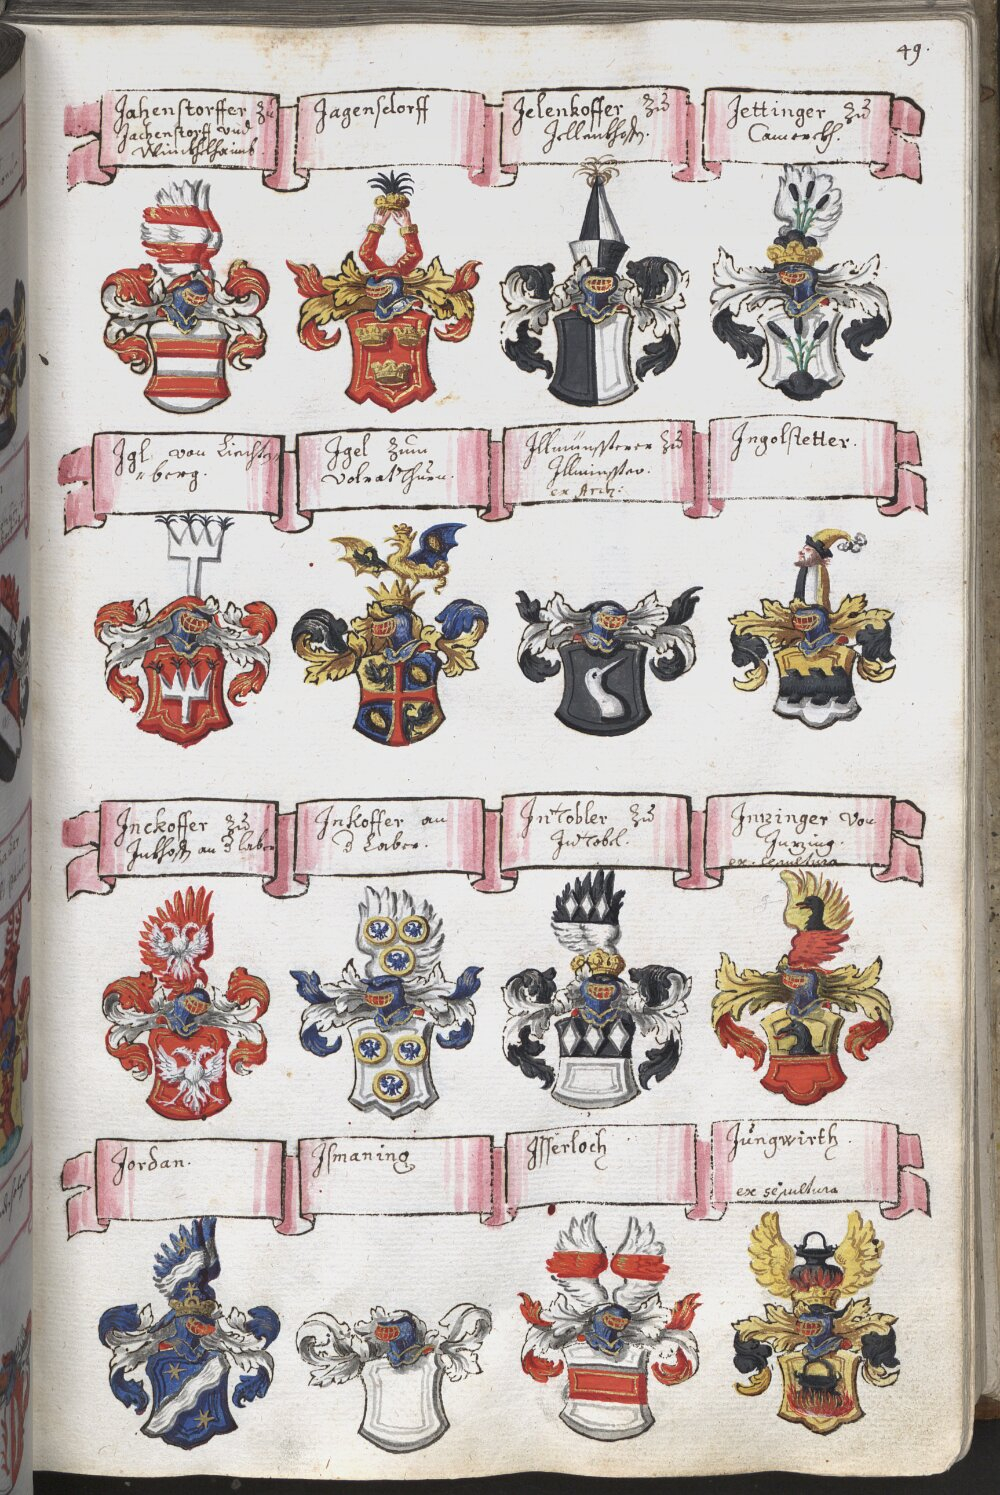 49.
Jahenstorffer zu
Jachenstorff und
Jagensdorff
Jelenkoffer zu
Jellenkhofn.
Jettinger zu
Camerekh.
Jgl von Liechten
berg.
Jgel zum
Volrat Thurn.
Jllmünsterer zu
Jllminster.
Jngolstetter.
Jnckoffer zu
Jnkhofn an d laber
Jnkoffer an
d Laber.
Jntobler zu
Jntobl.
Jnzinger von
Jnzing.
ex sepultura
Jordan.
Jsmaning
Jsserloch
Jungwirth.
ex sepultura